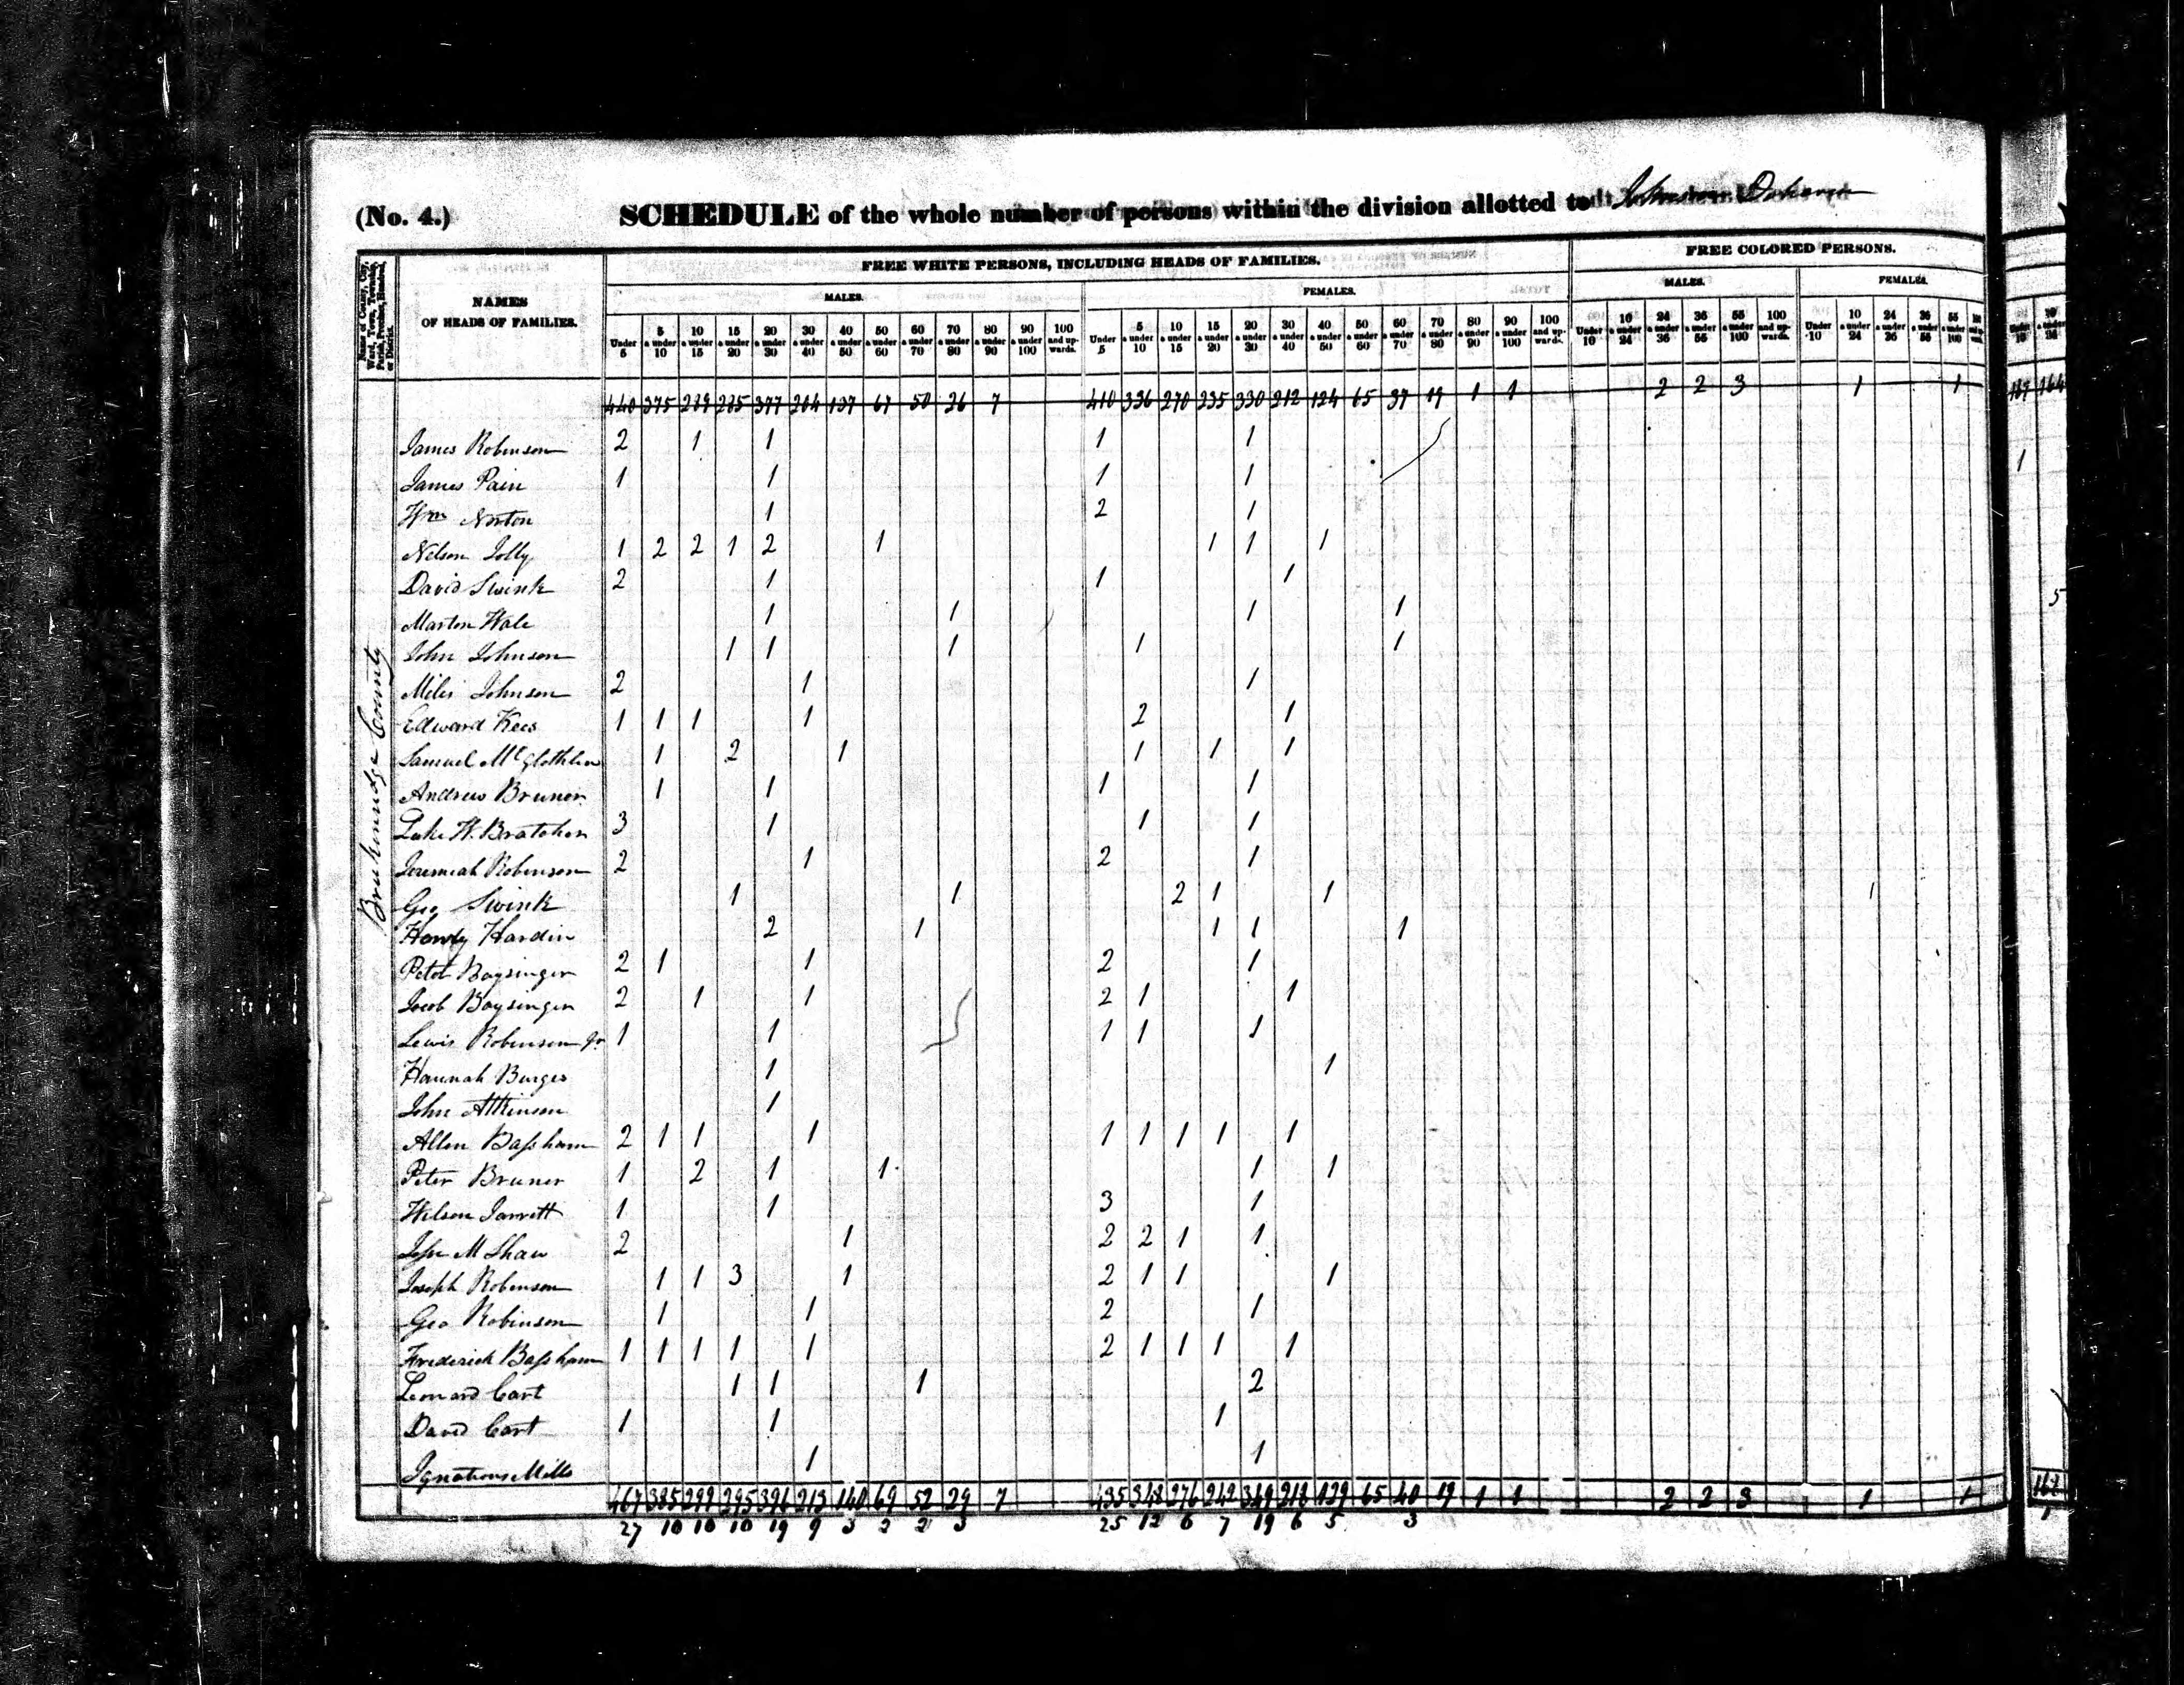 (No. 4.) SCHEDULE of the whole number of persons within the division allotted to
FREE WHITE PERSONS, INCLUDING HEADS OF FAMILIES. FREE COLORED PERSONS.
NAMES OF HEADS OF FAMILIES. MALES. FEMALES. MALES. FEMALES.
Under 5 5 & under 10 10 & under 15 15 & under 20 20 & under 30 30 & under 40 40 & under 50 50 & under 60 60 & under 70 70 & under 80 80 & under 90 90 & under 100 100 and upwards. Under 5 5 & under 10 10 & under 15 15 & under 20 20 & under 30 30 & under 40 40 & under 50 50 & under 60 60 & under 70 70 & under 80 80 & under 90 90 & under 100 100 and upwards. Under 10 10 & under 24 24 & under 36 36 & under 55 55 & under 100 100 and upwards. Under 10 10 & under 24 24 & under 36 36 & under 55 55 & under 100
440 375 289 285 377 204 137 67 50 26 7 410 336 270 235 330 212 124 65 37 19 1 1 2 2 3 1 1 164
James Robinson 2 1 1 1 1
James Pain 1 1 1 1 1
Wm Norton 1 2 1
Nelson Jolly 1 2 2 1 2 1 1 1 1
David Swink 2 1 1 1 5
Marton Hale 1 1 1 1
John Johnson 1 1 1 1 1
Miles Johnson 2 1 1
Edward Kees 1 1 1 1 2 1
Samuel McGlothlin 1 2 1 1 1 1
Andrew Bruner 1 1 1 1
Luke H. Bratcher 3 1 1 1
Jeremiah Robinson 2 1 2 1
Geo Swink 1 1 2 1 1 1
Hardin 2 1 1 1 1
Peter Baysinger 2 1 1 2 1
Jacob Baysinger 2 1 1 2 1 1
Lewis Robinson Jr 1 1 1 1 1
Hannah Burges 1 1
John Atkinson 1
Allen Baſsham 2 1 1 1 1 1 1 1 1
Peter Bruner 1 2 1 1 1 1
Wilson Jarrett 1 1 3 1
M Shaw 2 1 2 2 1 1
Joseph Robinson 1 1 3 1 2 1 1 1
Geo Robinson 1 1 2 1
Frederick Baſsham 1 1 1 1 1 2 1 1 1 1
Leonard Cart 1 1 1 2
David Cart 1 1 1
Ignatious Mills 1 1
467 385 299 295 396 213 140 69 52 29 7 435 348 276 242 349 218 129 65 40 19 1 1 2 2 3 1 1
27 10 10 10 19 9 3 2 2 3 25 12 6 7 19 6 5 3
Breckenridge County